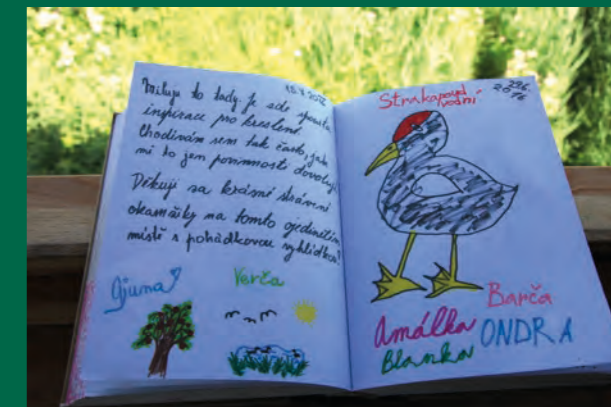 Miluju to tady. Je zde spousta
inspirace pro kreslení.
Chodívám sem tak často, jak
mi to jen povinnosti dovolují.
Děkuji za krásné strávené
okamžiky na tomto ojedinělém
místě s pohádkovou vyhlídkou!
Ajuna
Verča
Strakapoud
vodní
2016
Barča
Amálka ONDRA
Blanka